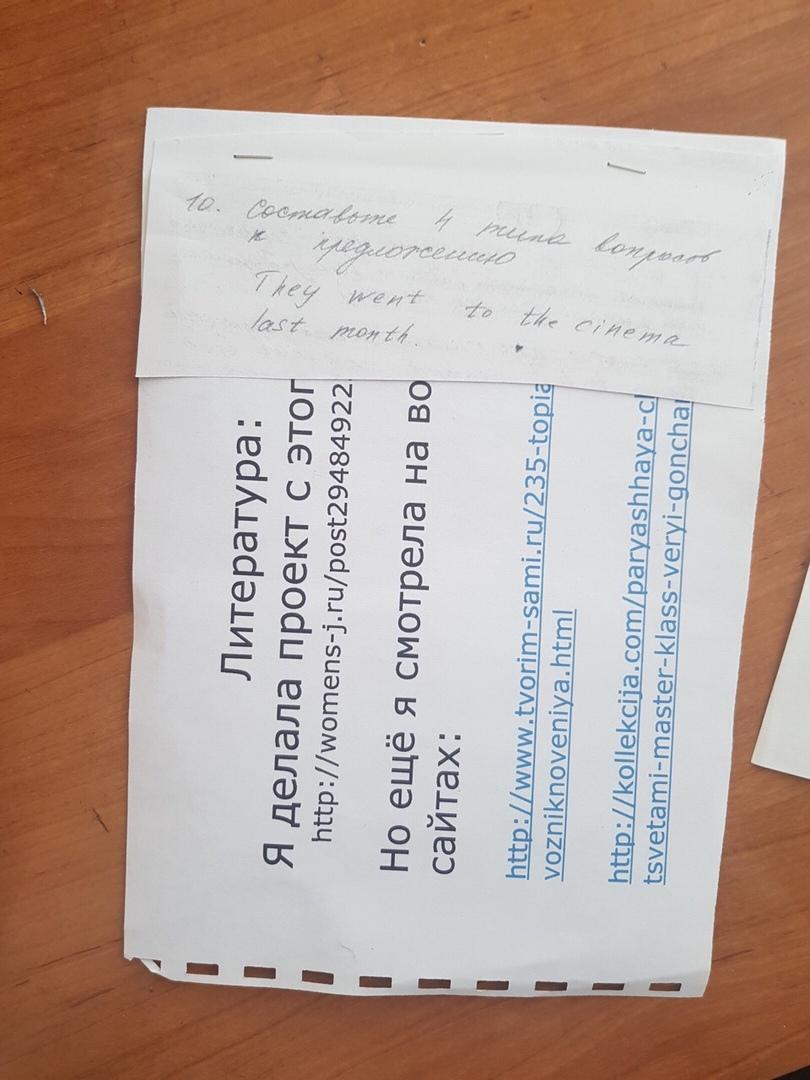 10. Составьте 4 типа вопросов
к предложению
They went to the cinema
last month.
Литература:
Я делала проект с этог
http://womens-j.ru/post29484922
Но ещё я смотрела на во
сайтах:
http://www.tvorim-sami.ru/235-topia
vozniknoveniya.html
http://kollekcija.com/paryashhaya-cl
tsvetami-master-klass-veryi-gonchar